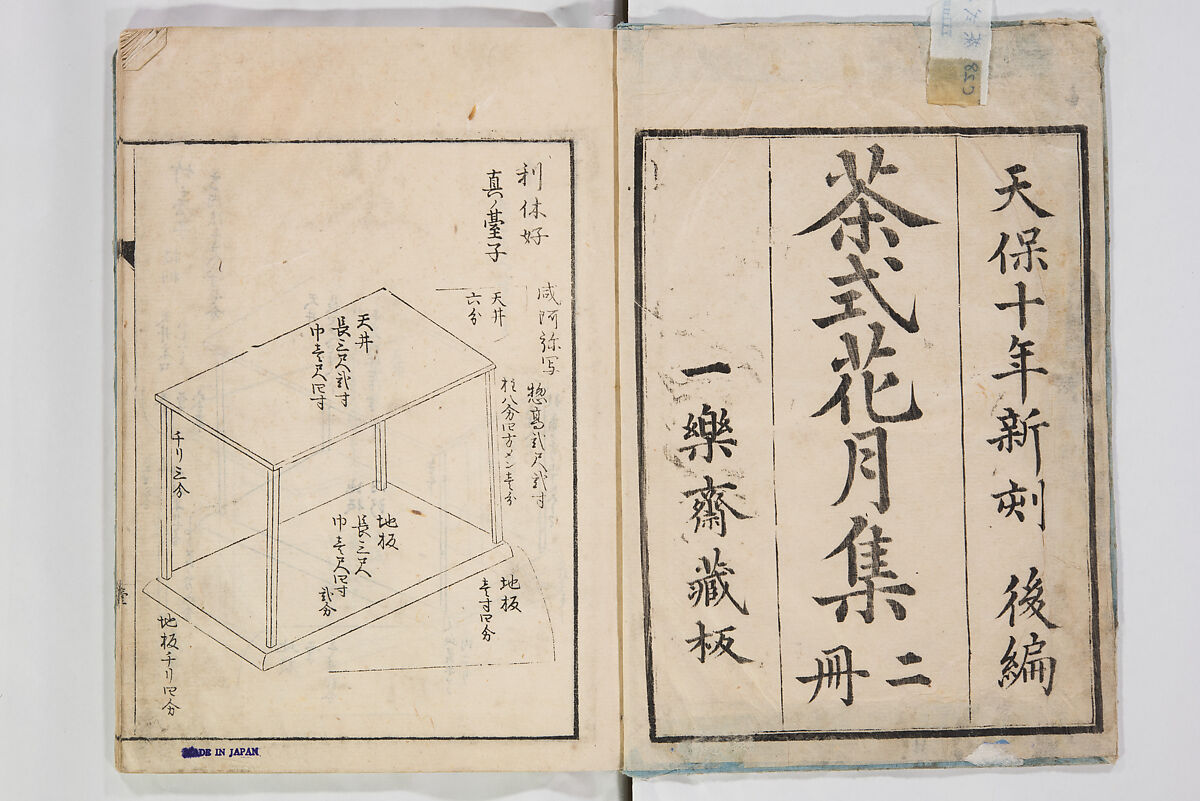 天保十年新刻 後編
茶式花月集
二
冊
一樂齋藏板
利休好
真ノ臺子
咸阿弥写
惣髙弐尺弐寸
柱八分四方メン壱分
天井
六分
天井
長三尺弐寸
巾壱尺四寸
チリ三分
地板
長三尺
巾壱尺四寸
弐分
地板
壱寸四分
地板チリ四分
臺
MADE IN JAPAN